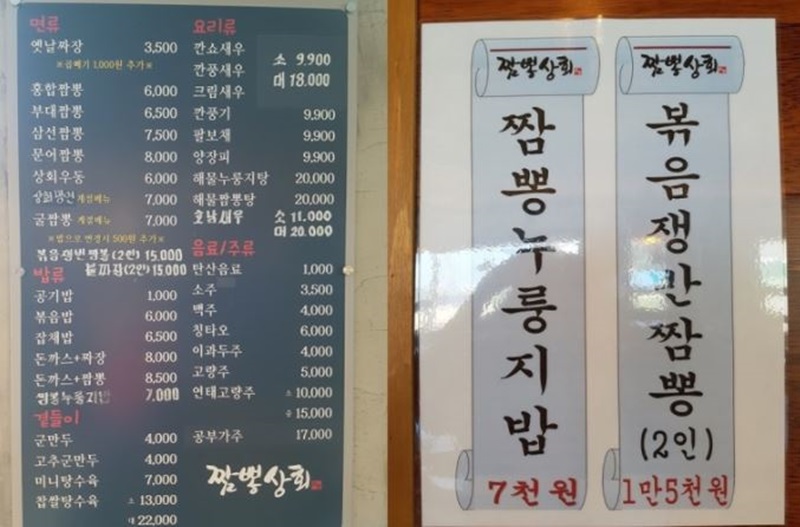 면류
옛날짜장 3,500
※곱빼기 1,000원 추가※
홍합짬뽕 6,000
부대짬뽕 6,500
삼선짬뽕 7,500
문어짬뽕 8,000
상회우동 6,000
계절메뉴 7,000
굴짬뽕 계절메뉴 7,000
※밥으로 변경시 500원 추가※
볶음쟁반짬뽕(2인) 15,000
(2인) 15,000
밥류
공기밥 1,000
볶음밥 6,000
잡채밥 6,500
돈까스+짜장 8,000
돈까스+짬뽕 8,500
짬뽕누룽지밥 7,000
곁들이
군만두 4,000
고추군만두 4,000
미니탕수육 7,000
찹쌀탕수육 소 13,000
대 22,000
요리류
깐쇼새우
깐풍새우
크림새우
소 9,900
대 18,000
깐풍기 9,900
팔보채 9,900
양장피 9,900
해물누룽지탕 20,000
해물짬뽕탕 20,000
소 11,000
대 20,000
음료/주류
탄산음료 1,000
소주 3,500
맥주 4,000
칭타오 6,000
이과두주 4,000
고량주 5,000
연태고량주 소 10,000
중 15,000
공부가주 17,000
짬뽕상회
짬뽕상회
짬뽕누룽지밥
7천원
짬뽕상회
볶음쟁반짬뽕
(2인)
1만5천원